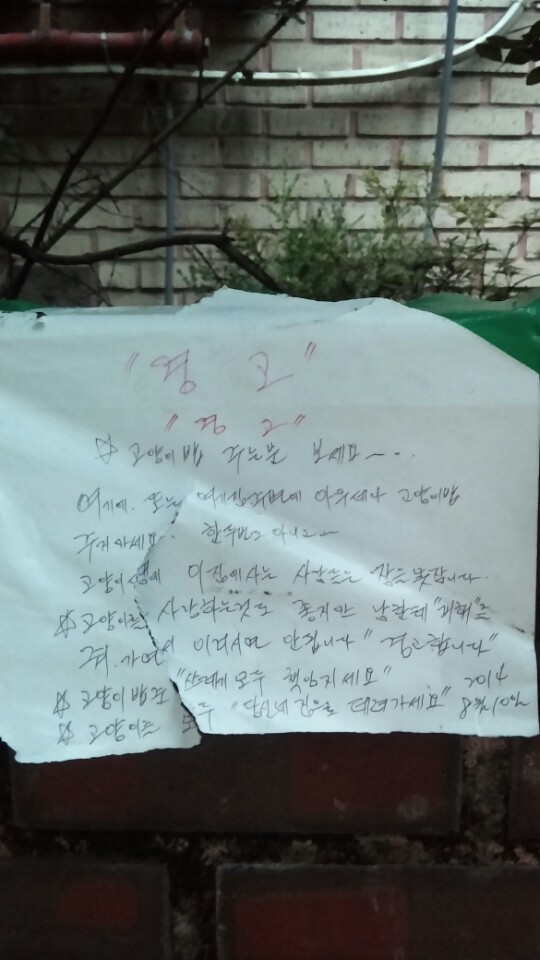 "경 고"
"경 고"
☆ 고양이밥 주는분 보세요~..
여기에. 또는 여기집주변에 아무데나 고양이밥
주지마세요. 한두번도 아니고~
고양이땜에 이집에사는 사람들은 잠을못잡니다.
☆ 고양이를 사랑하는것도 좋지만 남한테 "피해"를
줘.가면서 이러시면 안됩니다 "경고합니다"
☆ 고양이밥그 모두 책임지세요"
☆ 고양이를 모두 "당신네 집으로 데려가세요" 2014 8월10일